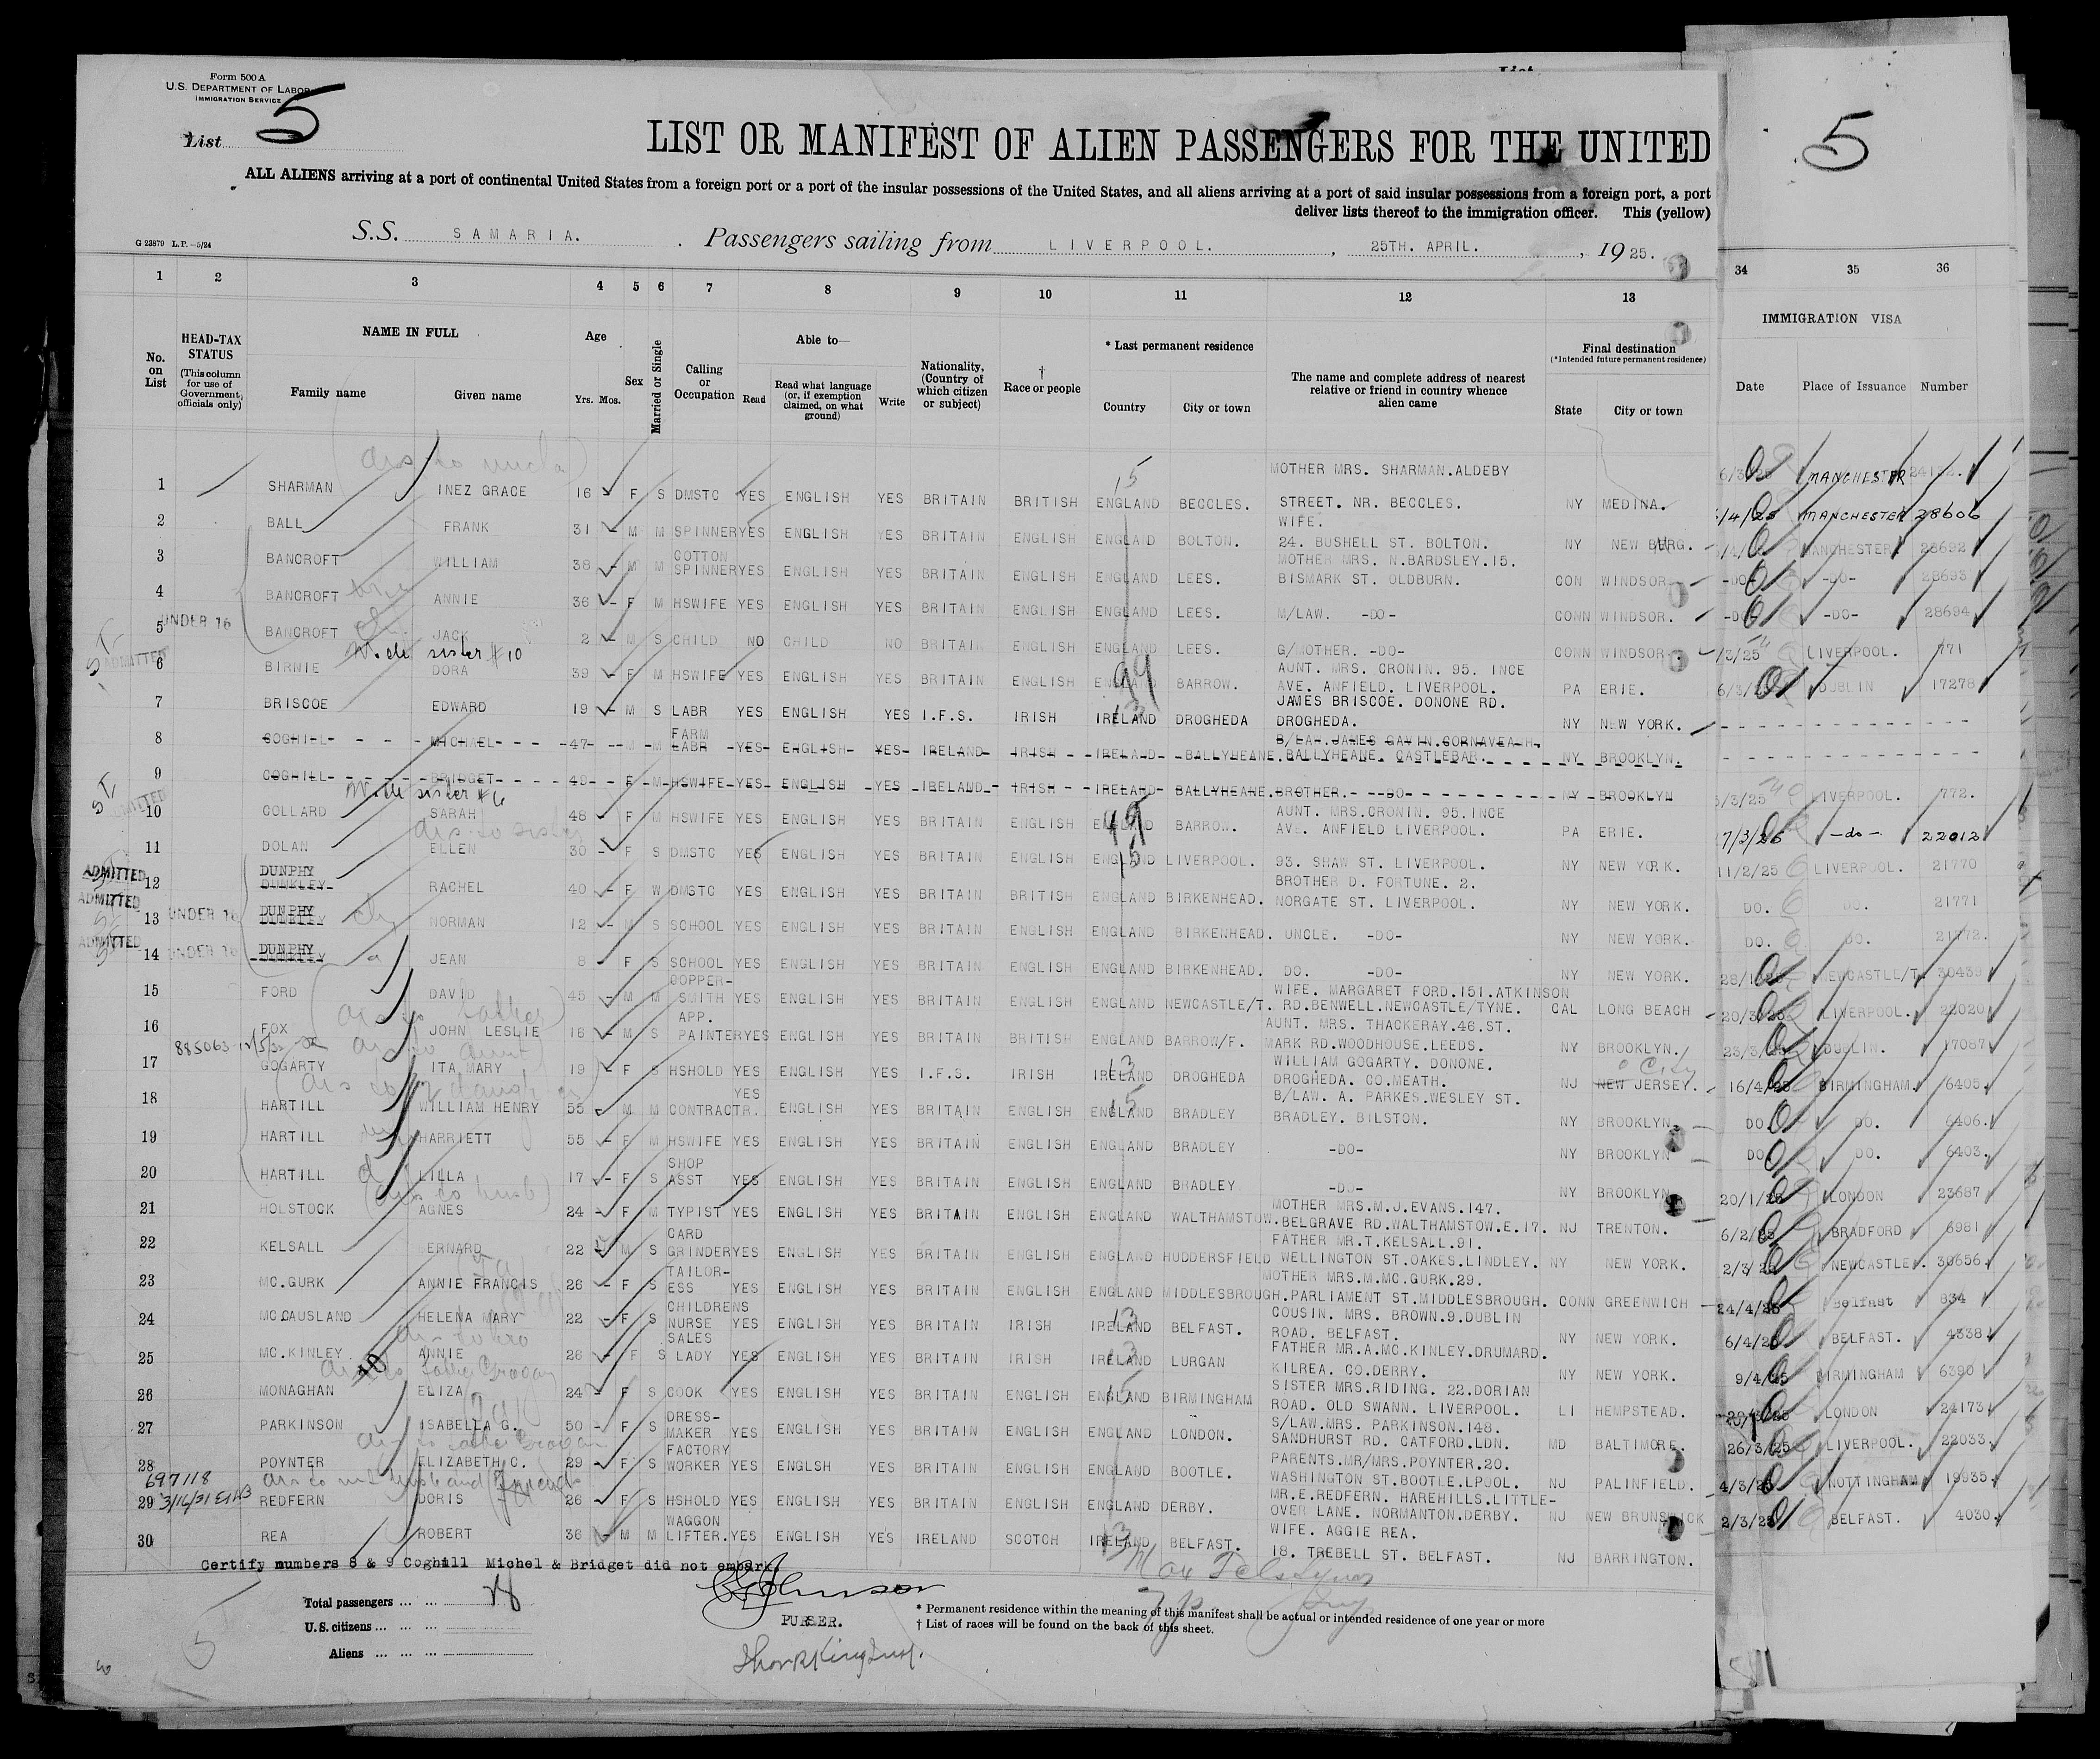 Form 500 A
U.S. DEPARTMENT OF LABOR
IMMIGRATION SERVICE
List 5
5
LIST OR MANIFEST OF ALIEN PASSENGERS FOR THE UNITED
ALL ALIENS arriving at a port of continental United States from a foreign port or a port of the insular possessions of the United States, and all aliens arriving at a port of said insular possessions from a foreign port, a port
deliver lists thereof to the immigration officer. This (yellow)
G 23879 L.P.—5/24
S.S. SAMARIA. Passengers sailing from LIVERPOOL. , 25TH. APRIL. , 1925.
1 2 3 4 5 6 7 8 9 10 11 12 13 34 35 36
No. on List
HEAD-TAX STATUS (This column for use of Government officials only)
NAME IN FULL Family name Given name
Age Yrs. Mos.
Sex
Married or Single
Calling or Occupation
Able to— Read Read what language (or, if exemption claimed, on what ground) Write
Nationality, (Country of which citizen or subject)
† Race or people
* Last permanent residence Country City or town
The name and complete address of nearest relative or friend in country whence alien came
Final destination (*Intended future permanent residence) State City or town
IMMIGRATION VISA Date Place of Issuance Number
MOTHER MRS. SHARMAN.ALDEBY
1 SHARMAN INEZ GRACE 16 F S DMSTC YES ENGLISH YES BRITAIN BRITISH ENGLAND BECCLES. STREET. NR. BECCLES. NY MEDINA. MANCHESTER
WIFE.
2 BALL FRANK 31 M M SPINNER YES ENGLISH YES BRITAIN ENGLISH ENGLAND BOLTON. 24. BUSHELL ST. BOLTON. NY NEW BURG. MANCHESTER 28606
COTTON MOTHER MRS. N.BARDSLEY.15.
3 BANCROFT WILLIAM 38 M M SPINNER YES ENGLISH YES BRITAIN ENGLISH ENGLAND LEES. BISMARK ST. OLDBURN. CON WINDSOR. MANCHESTER 28692
4 BANCROFT ANNIE 36 F M HSWIFE YES ENGLISH YES BRITAIN ENGLISH ENGLAND LEES. M/LAW. -DO- CONN WINDSOR. -DO- -DO- 28693
5 UNDER 16 BANCROFT JACK 2 M S CHILD NO CHILD NO BRITAIN ENGLISH ENGLAND LEES. G/MOTHER. -DO- CONN WINDSOR. -DO- -DO- 28694
ADMITTED sister #10 AUNT. MRS. CRONIN. 95. INCE
6 BIRNIE DORA 39 F M HSWIFE YES ENGLISH YES BRITAIN ENGLISH ENGLAND BARROW. AVE. ANFIELD. LIVERPOOL. PA ERIE. LIVERPOOL. 771
JAMES BRISCOE. DONONE RD.
7 BRISCOE EDWARD 19 M S LABR YES ENGLISH YES I.F.S. IRISH IRELAND DROGHEDA DROGHEDA. NY NEW YORK. DUBLIN 17278
FARM B/LAW.JAMES GAVIN.CORNAVEAH.
8 COGHILL MICHAEL 47 M M LABR YES ENGLISH YES IRELAND IRISH IRELAND BALLYHEANE. BALLYHEANE. CASTLEBAR. NY BROOKLYN.
9 COGHILL BRIDGET 49 F M HSWIFE YES ENGLISH YES IRELAND IRISH IRELAND BALLYHEANE. BROTHER. -DO- NY BROOKLYN
ADMITTED sister #6 AUNT. MRS.CRONIN. 95.INCE
10 COLLARD SARAH 48 F M HSWIFE YES ENGLISH YES BRITAIN ENGLISH ENGLAND BARROW. AVE. ANFIELD LIVERPOOL. PA ERIE. LIVERPOOL. 772.
11 DOLAN ELLEN 30 F S DMSTC YES ENGLISH YES BRITAIN ENGLISH ENGLAND LIVERPOOL. 93. SHAW ST. LIVERPOOL. NY NEW YORK. -do- 22012
ADMITTED DUNPHY BROTHER D. FORTUNE. 2.
12 DUNKLEY RACHEL 40 F W DMSTC YES ENGLISH YES BRITAIN BRITISH ENGLAND BIRKENHEAD. NORGATE ST. LIVERPOOL. NY NEW YORK. 11/2/25 LIVERPOOL. 21770
ADMITTED DUNPHY
13 UNDER 16 DUNKLEY NORMAN 12 M S SCHOOL YES ENGLISH YES BRITAIN ENGLISH ENGLAND BIRKENHEAD. UNCLE. -DO- NY NEW YORK. DO. DO. 21771
ADMITTED DUNPHY
14 UNDER 16 DUNKLEY JEAN 8 F S SCHOOL YES ENGLISH YES BRITAIN ENGLISH ENGLAND BIRKENHEAD. DO. -DO- NY NEW YORK. DO. DO. 21772.
COPPER- WIFE. MARGARET FORD.151.ATKINSON
15 FORD DAVID 45 M M SMITH YES ENGLISH YES BRITAIN ENGLISH ENGLAND NEWCASTLE/T. RD.BENWELL.NEWCASTLE/TYNE. CAL LONG BEACH NEWCASTLE/T. 30439
APP. AUNT. MRS. THACKERAY.46.ST.
16 FOX JOHN LESLIE 16 M S PAINTER YES ENGLISH YES BRITAIN BRITISH ENGLAND BARROW/F. MARK RD.WOODHOUSE.LEEDS. NY BROOKLYN. LIVERPOOL. 22020
WILLIAM GOGARTY. DONONE.
17 GOGARTY ITA MARY 19 F S HSHOLD YES ENGLISH YES I.F.S. IRISH IRELAND DROGHEDA DROGHEDA. CO.MEATH. NJ NEW JERSEY. City DUBLIN. 17087
B/LAW. A. PARKES.WESLEY ST.
18 HARTILL WILLIAM HENRY 55 M M CONTRACTR. YES ENGLISH YES BRITAIN ENGLISH ENGLAND BRADLEY BRADLEY. BILSTON. NY BROOKLYN. 16/4/25 BIRMINGHAM. 6405.
19 HARTILL HARRIETT 55 F M HSWIFE YES ENGLISH YES BRITAIN ENGLISH ENGLAND BRADLEY -DO- NY BROOKLYN DO. DO. 6406.
SHOP
20 HARTILL LILLA 17 F S ASST YES ENGLISH YES BRITAIN ENGLISH ENGLAND BRADLEY -DO- NY BROOKLYN DO. DO. 6403.
MOTHER MRS.M.J.EVANS.147.
21 HOLSTOCK AGNES 24 F M TYPIST YES ENGLISH YES BRITAIN ENGLISH ENGLAND WALTHAMSTOW. BELGRAVE RD.WALTHAMSTOW.E.17. NJ TRENTON. 20/1/25 LONDON 23687
CARD FATHER MR.T.KELSALL.91.
22 KELSALL BERNARD 22 M S GRINDER YES ENGLISH YES BRITAIN ENGLISH ENGLAND HUDDERSFIELD WELLINGTON ST.OAKES.LINDLEY. NY NEW YORK. 6/2/25 BRADFORD 6981
TAILOR- MOTHER MRS.M.MC.GURK.29.
23 MC.GURK ANNIE FRANCIS 26 F S ESS YES ENGLISH YES BRITAIN ENGLISH ENGLAND MIDDLESBROUGH. PARLIAMENT ST.MIDDLESBROUGH. CONN GREENWICH 2/3/25 NEWCASTLE. 30656
CHILDRENS COUSIN. MRS. BROWN.9.DUBLIN
24 MCCAUSLAND HELENA MARY 22 F S NURSE YES ENGLISH YES BRITAIN IRISH IRELAND BELFAST. ROAD. BELFAST. NY NEW YORK. 24/4/25 Belfast 834
SALES FATHER MR.A.MC.KINLEY.DRUMARD.
25 MC.KINLEY ANNIE 26 F S LADY YES ENGLISH YES BRITAIN IRISH IRELAND LURGAN KILREA. CO.DERRY. NY NEW YORK. 6/4/25 BELFAST. 4338
SISTER MRS.RIDING. 22.DORIAN
26 MONAGHAN ELIZA 24 F S COOK YES ENGLISH YES BRITAIN ENGLISH ENGLAND BIRMINGHAM ROAD. OLD SWANN. LIVERPOOL. LI HEMPSTEAD. 9/4/25 BIRMINGHAM 6390
DRESS- S/LAW.MRS. PARKINSON.148.
27 PARKINSON ISABELLA G. 50 F S MAKER YES ENGLISH YES BRITAIN ENGLISH ENGLAND LONDON. SANDHURST RD. CATFORD.LDN. MD BALTIMORE. LONDON 24173
FACTORY PARENTS.MR/MRS.POYNTER.20.
28 POYNTER ELIZABETH C. 29 F S WORKER YES ENGLSH YES BRITAIN ENGLISH ENGLAND BOOTLE. WASHINGTON ST.BOOTLE.LPOOL. NJ PALINFIELD. 26/3/25 LIVERPOOL. 22033.
697118 MR.E.REDFERN. HAREHILLS.LITTLE-
29 3/16/31 REDFERN DORIS 26 F S HSHOLD YES ENGLISH YES BRITAIN ENGLISH ENGLAND DERBY. OVER LANE. NORMANTON.DERBY. NJ NEW BRUNSWICK 4/3/25 NOTTINGHAM 19935.
WAGGON WIFE. AGGIE REA.
30 REA ROBERT 36 M M LIFTER. YES ENGLISH YES IRELAND SCOTCH IRELAND BELFAST. 18. TREBELL ST. BELFAST. NJ BARRINGTON. 2/3/25 BELFAST. 4030.
Certify numbers 8 & 9 Coghill Michel & Bridget did not embark.
Total passengers ... ...
U.S. citizens ... ... ...
Aliens ... ... ...
PURSER.
* Permanent residence within the meaning of this manifest shall be actual or intended residence of one year or more
† List of races will be found on the back of this sheet.